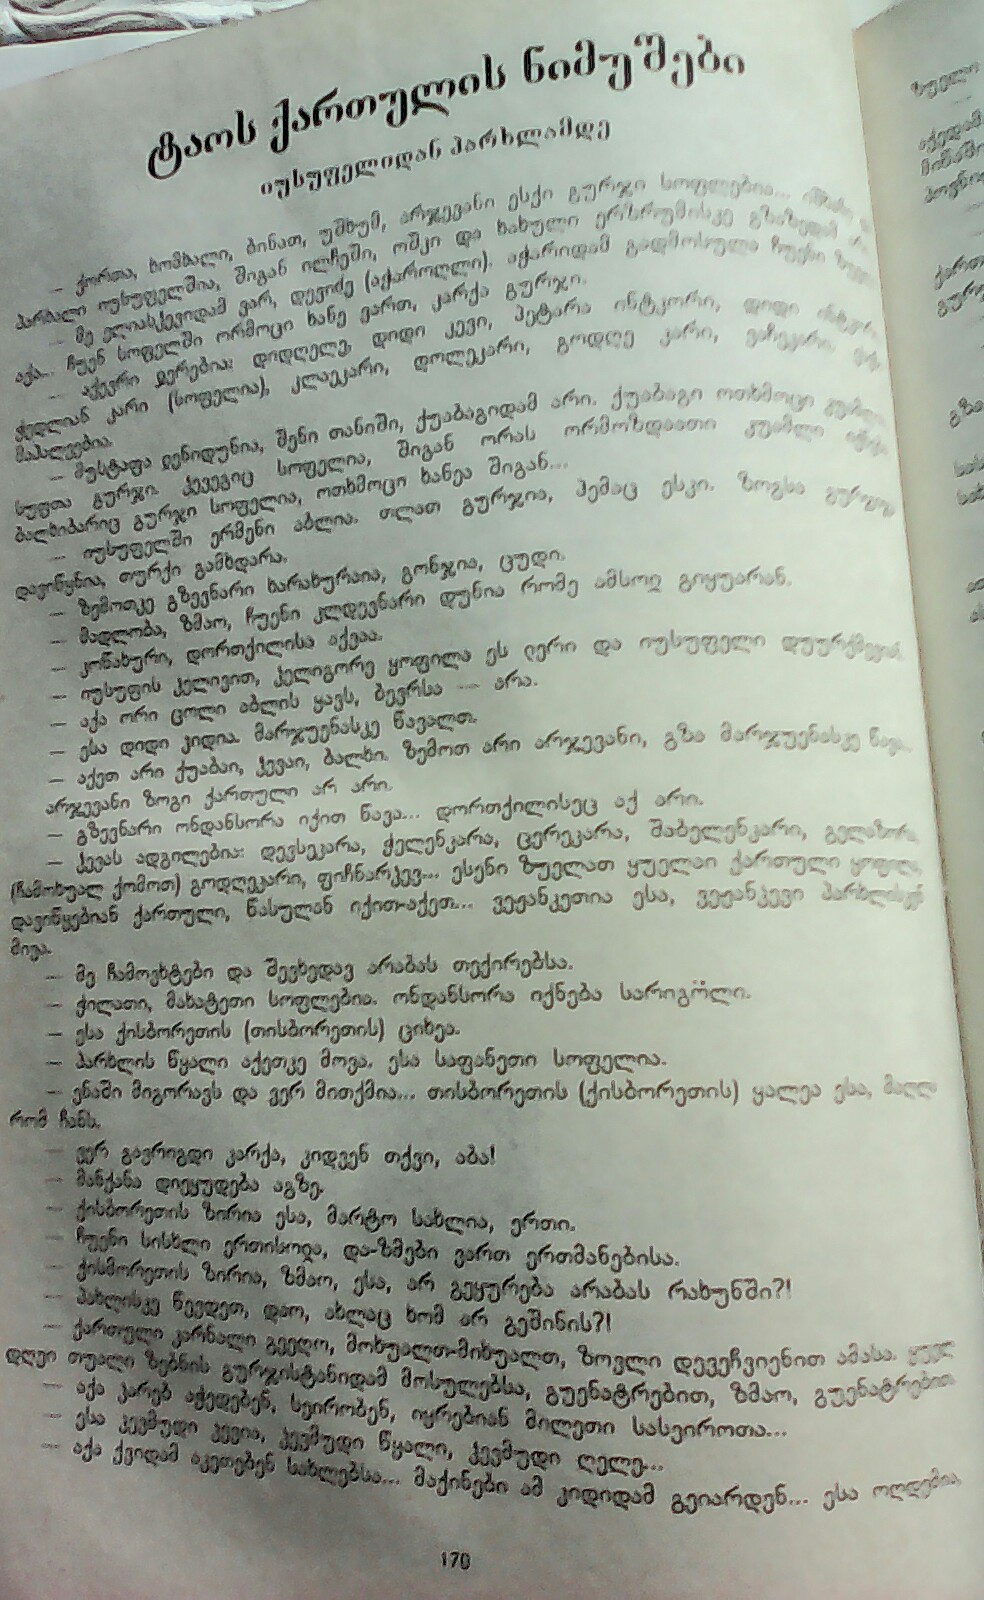 ტაოს ქართულის ნიმუშები
იუსუფელიდან პარხლამდე
— ქორთა, ხომხალი, ბინათ, უშხუმ, არჯევანი ესქი გურჯი სოფლებია...
პარხალი იუსუფელშია, შიგან ილჩეში, ოშკი და ხახული ერზრუმისკე გზაზედამ
— მე ელიასკევიდამ ვარ, დევიძე (აქაროღლი). აჭარიდამ გადმოსულა ჩუენი
აქა... ჩუენ სოფელში ორმოცი ხანე ვართ, კარქა გურჯი.
— აქევრი ჲერებია: დიდღელე, დიდი კევი, პეტარა ინტკორი, დიდი
ჭედლიან კარი (სოფელია), კლაეკარი, დოლეკარი, გოდღე კარი,
მაჰალეებია.
— მუსტაფა ჲენიდუნია, შენი თანიში, ქუაბაგიდამ არი. ქუაბაგი ოთხმოცი
სუფთა გურჯი. ჰევეგიც სოფელია, შიგან ორას ორმოზდაათი კუამლი
ბალხიბარიც გურჯი სოფელია, ოთხმოცი ხანეა შიგან...
— იუსუფელში ერმენი აბლია. თლათ გურჯია, ჰემაც ესკი. ზოგსა
დავიწყნია, თურქი გამხდარა.
— ზემოთკე გზევნარი ხარახურაია, გონჯია, ცუდი.
— მადლობა, ზმაო, ჩუენი კლდევნარი დუნია რომე ამსოღ გიყუარან.
— კონახური, დორთქილისა აქვაა.
— იუსუფის ჰელივით, ჰელიგორე ყოფილა ეს ჲერი და იუსუფელი
— აქა ორი ცოლი აბლის ყავს, ბევრსა — არა.
— ესა დიდი კიდია. მარჯუენასკე წავალთ.
— აქეთ არი ქუაბაი, ჰევაი, ბალხი. ზემოთ არი არჯევანი, გზა მარჯუენასკე
არჯევანი ზოგი ქართული არ არი.
— გზევნარი ონდანსორა იქით წავა... დორთქილისეც აქ არი.
— ჰევას ადგილებია: დევსეკარა, ჭელენკარა, ცერეკარა, შაბელენკარი,
(ჩამოხუალ ქომოთ) გოდღეკარი, ფიჩნარკევ... ესენი ზუელათ ყუელაი ქართული
დავიწყებიან ქართული, წასულან იქით-აქეთ... ვეჟანკეთია ესა, ვეჟანკევი პარხლისკე
მივა.
— მე ჩამოვხტები და შევხედავ არაბას თექირებსა.
— ჭილათი, მახატეთი სოფლებია. ონდანსორა იქნება სარიგöლი.
— ესა ქისბორეთის (თისბორეთის) ციხეა.
— პარხლის წყალი აქეთკე მოვა. ესა საფანეთი სოფელია.
— ენაში მიგორავს და ვერ მითქმია... თისბორეთის (ქისბორეთის) ყალეა ესა, მაღლა
რომ ჩანს.
— ვერ გავრიგდი კარქა, კიდვენ თქვი, აბა!
— მანქანა დიეყუდება აგზე.
— ქისბორეთის ზირია ესა, მარტო სახლია, ერთი.
— ჩუენი სისხლი ერთისოჲა, და-ზმები ვართ ერთმანებისა.
— ქისმორეთის ზირია, ზმაო, ესა, არ გეყურება არაბას რახუნში?!
— პახლისკე წევდეთ, დაო, ახლაც ხომ არ გეშინის?!
— ქართული კარნალი გეეღო, მოხუალთ-მიხუალთ, ზოვლი დევეჩვიენით ამასა. ყუელ
დღეი თუალი ზებნის გურჯისტანიდამ მოსულებსა, გუენატრებით, ზმაო, გუენატრებით
— აქა კარებ აჭედებენ, სეირობენ, იყრებიან მილეთი სასეიროთა...
— ესა ჰევმუდი კევია, ჰევმუდი წყალი, ჰევმუდი ღელე...
— აქა ქვიდამ აკეთებენ სახლებსა... მაქინები ამ კიდიდამ გეიარდენ... ესა
170